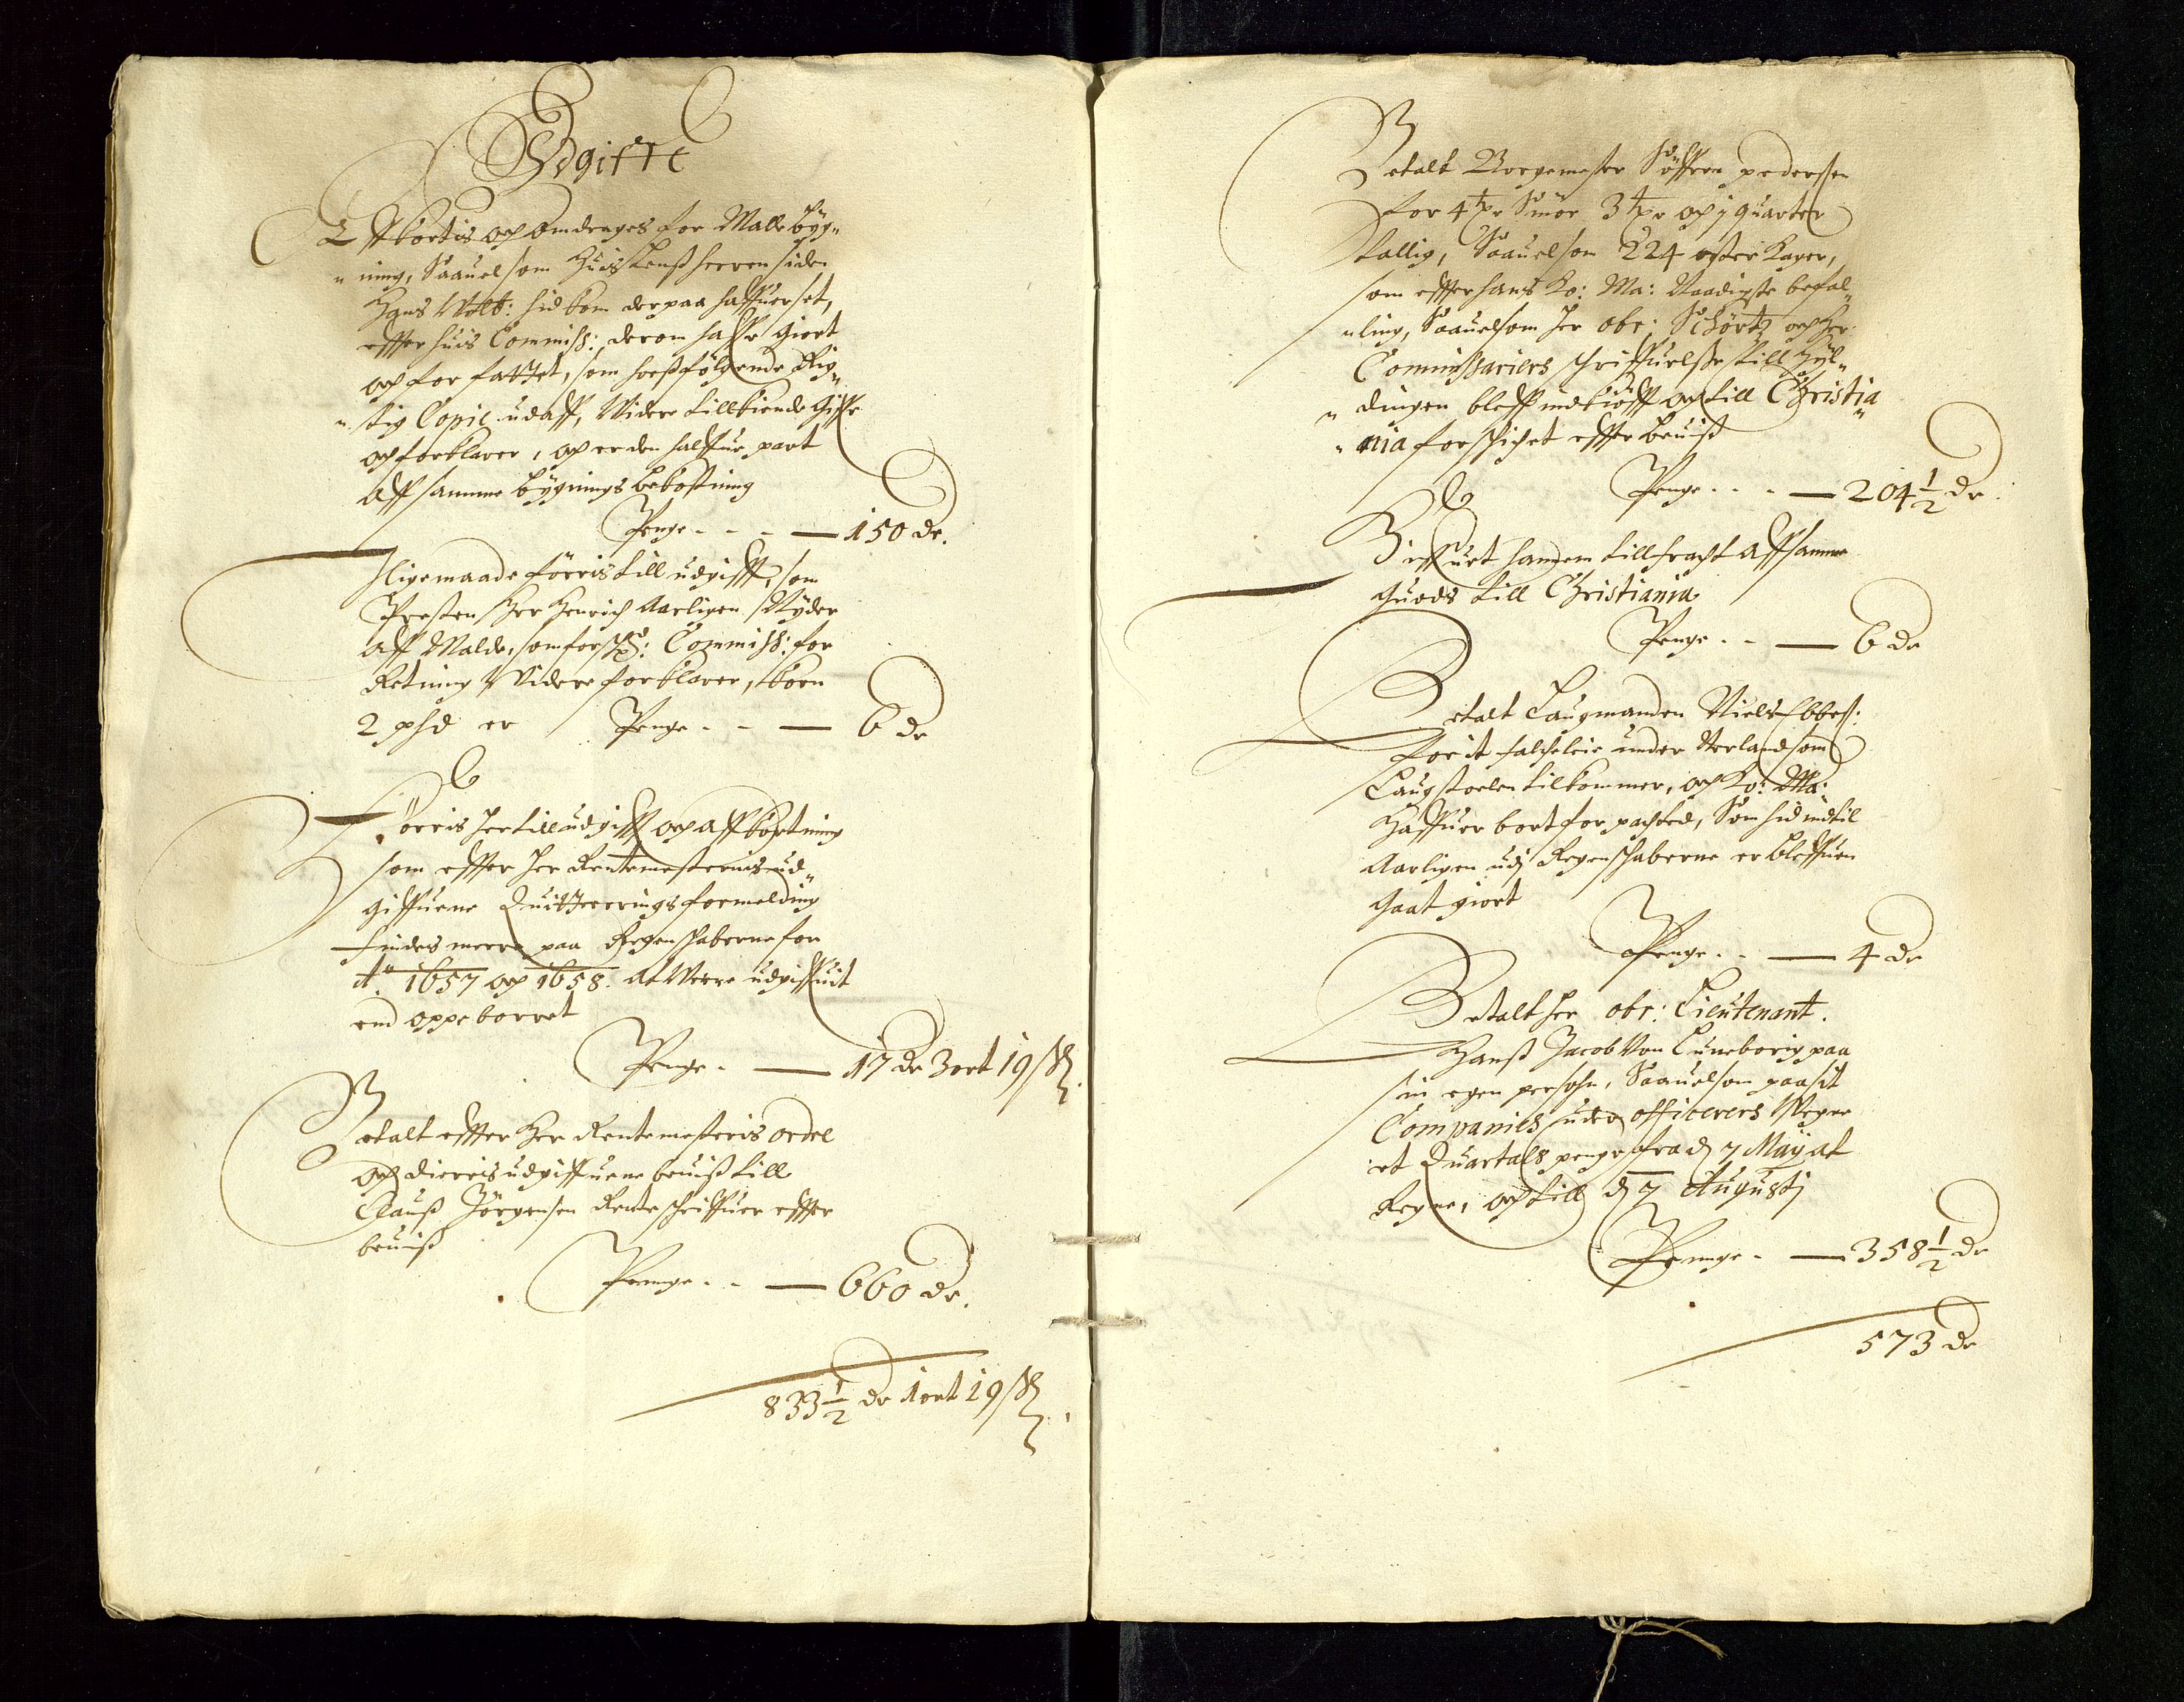 Udgifft
Affkortis och Omdrages for Malle byg„
„ning, Saauelsom Huis Lenssherren siden
Hans Welb: hid kom der paa haffuer set,
effter huis Commiss: derom haffr giort
och forfattet, som hoessfölgende Rig„
„tig Copie udaff, Widere tillkiende Giffr
och forklarer, och er den halffue part
Aff samme bygnings bekostning
Penge - - - 150 dr.
Iligemaade förris till udgifft, som
Presten Her Henrich Aarligen Nyder
Aff Malde, som forschr: Commiss: for
Retning Widere forklarer, korn
2 phd er Penge - - 6 dr
Förris her till udgifft och Affkortning
som effter her Rentemesternis ud„
giffuene Quitterings formelding
findes meere paa Regenskaberne for
Ao 1657 och 1658. At Were udgiffuit
end oppeborret
Penge - 17 dr 3 ort 19 sk
Betalt effter Her Rentemesteris ordel
och dierris udgiffuene beuiss till
Clauss Jörgensen Renteschriffuer effter
beuiss
Penge - - 660 dr.
833½ dr 1 ort 19 sk
Betalt Borgemester Söffren pedersen
for 4 tdr Smör 3 tdr och 1 quarter
tallig, Saauelsom 224
som effter hans Ko: Ma: Naadigste befal„
„ling, Saauelsom her obr: och her
Commissariers schriffuelsse till
„dingen bleff indkiöfft och till Christia
„nia forschicket effter beuiss
Penge - - - 204½ dr.
Giffuet hannem till fracht Aff samme
guods till Christiania
Penge - - 6 dr
Betalt Laugmanden Niels Ebbess:
for it falcheleie under som
Laugstoelen tilkommer, och Ko: Ma:
Haffuer bortforpachted, Som hid indtil
Aarligen udj Regenschaberne er bleffuen
Gaat giort
Penge - - 4 dr
Betalt her obr: Lieutenant.
Hanss Jacob Von Luneborig paa
sin egen persohn, Saauelsom paa sit
Companies under officerers Wegne
et Quartals penge fra d 7 Maij at
Regne, och till d 7 Augustj
Penge - 358½ dr
573 dr